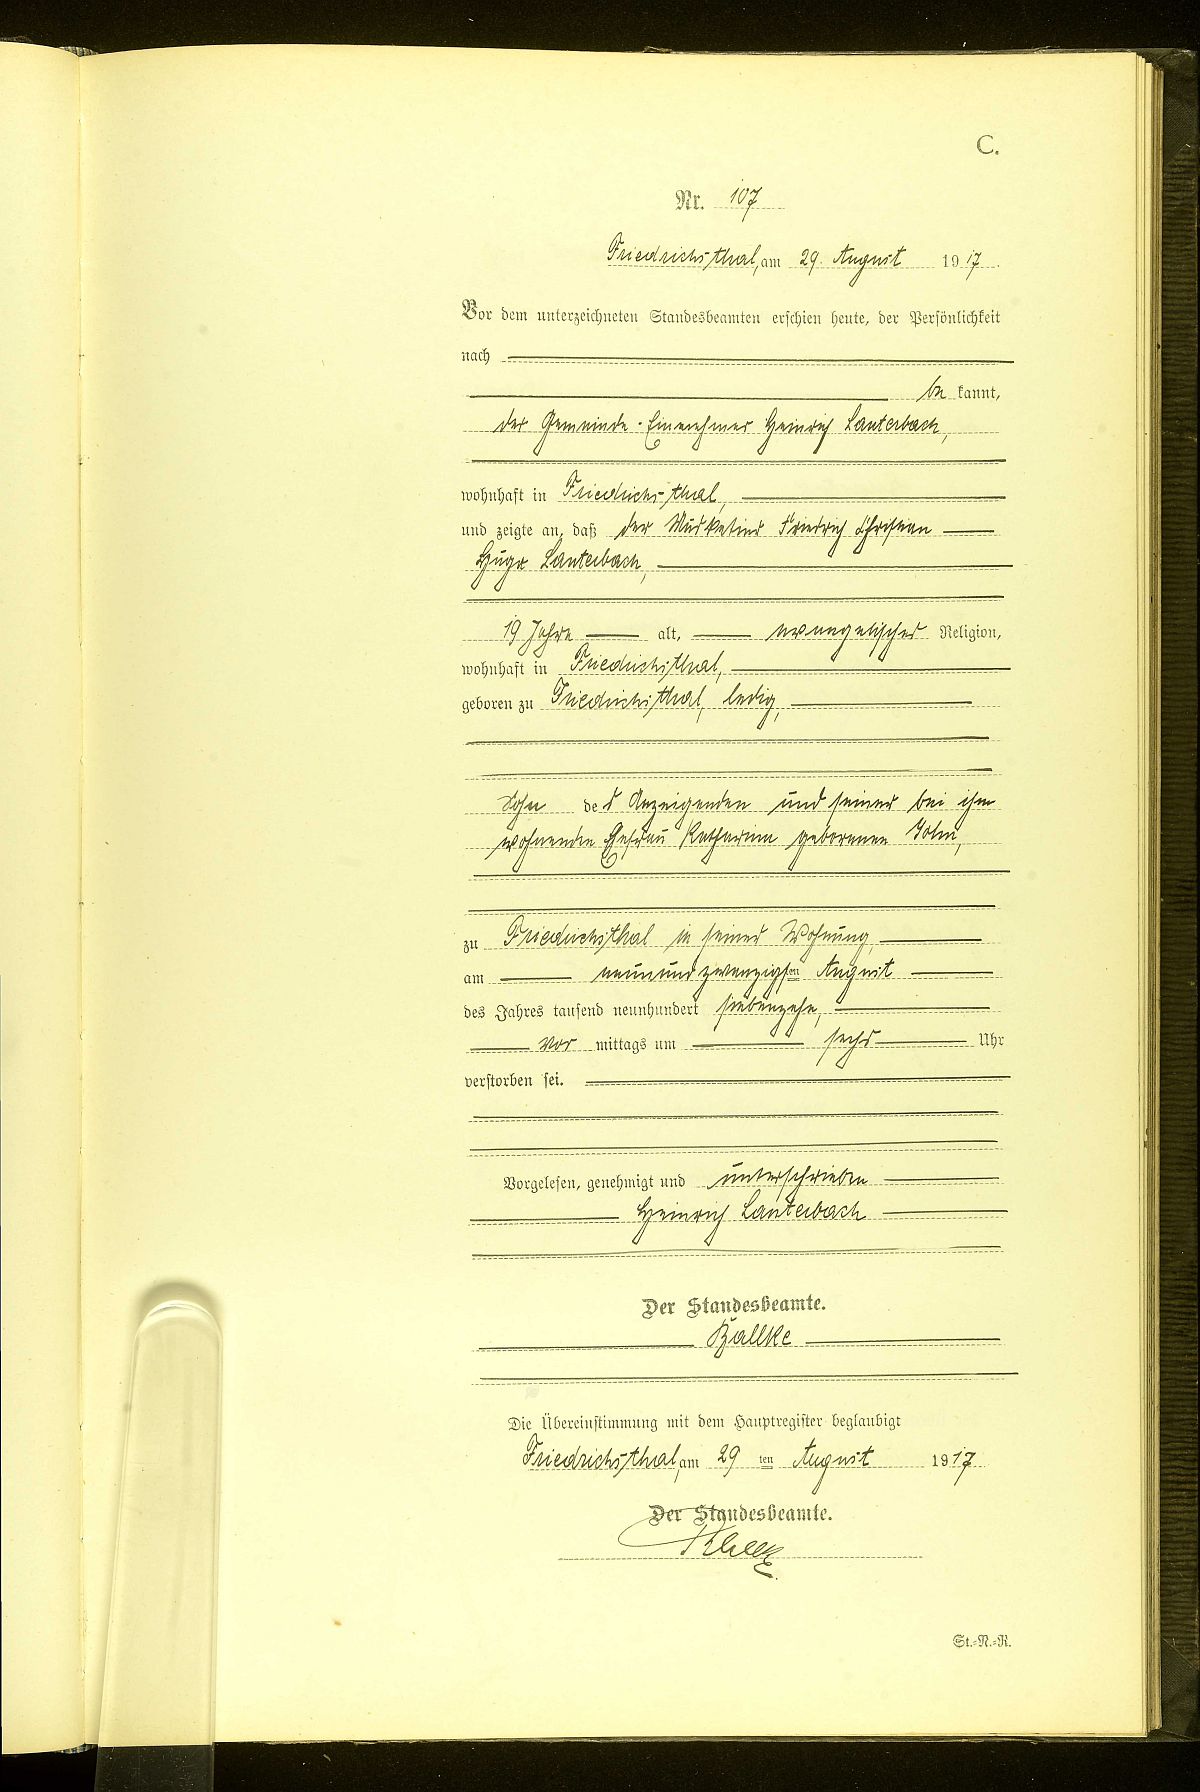 C.
Nr. 107
Friedrichsthal, am 29. August 1917.
Vor dem unterzeichneten Standesbeamten erschien heute, der Persönlichkeit
nach
be kannt,
der Gemeinde-Einnehmer Heinrich Lauterbach,
wohnhaft in Friedrichsthal,
und zeigte an, daß der Musketier Friedrich Christian
Hugo Lauterbach,
19 Jahre alt, evangelischer Religion,
wohnhaft in Friedrichsthal,
geboren zu Friedrichsthal, ledig,
Sohn des Anzeigenden und seiner bei ihm
wohnenden Ehefrau Katharina geborenen
zu Friedrichsthal in seiner Wohnung
am neunundzwanzigsten August
des Jahres tausend neunhundert siebenzehn,
vor mittags um sechs Uhr
verstorben sei.
Vorgelesen, genehmigt und unterschrieben
Heinrich Lauterbach
Der Standesbeamte.
Die Übereinstimmung mit dem Hauptregister beglaubigt
Friedrichsthal, am 29 ten August 1917
Der Standesbeamte.
St.-N.-R.